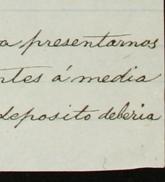 a presentarnos
ntes á media
deposito deberia